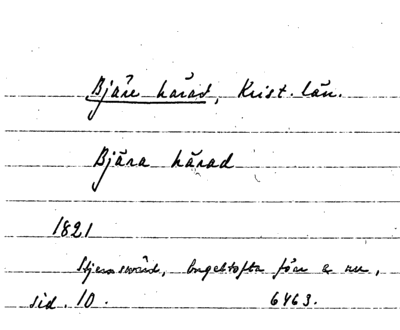 Bjäre härad, Krist. län.
Bjära härad
1821
Stjernswärd, Engeltofta förr & nu,
sid. 10. 6463.